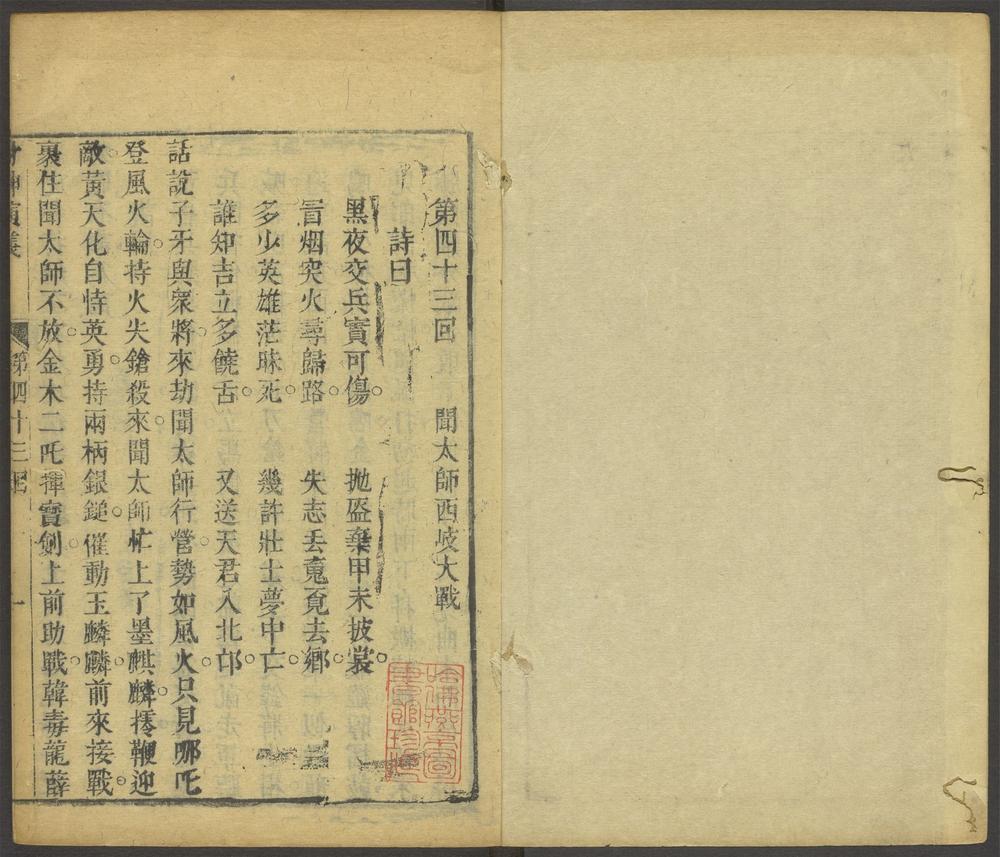 第四十三回 聞太師西岐大戰
詩曰
黑夜交兵實可傷 拋盔棄甲未披裳
冐烟突火尋歸路 失志丟魂覓去鄉
多少英雄茫昧死 幾許壯士夢中亡
誰知吉立多饒舌 又送天君入北邙
話說子牙與衆將來劫聞太師行營勢如風火只見哪吒
登風火輪持火尖鎗殺來聞太師忙上了墨麒麟擡鞭迎
敵黃天化自恃英勇持兩柄銀鎚催動玉麟麟前來接戰
裹住聞太師不放金木二吒揮寶劍上前助戰韓毒龍薛
封神演義 第四十三囬 一
哈佛燕京圖書館珍藏